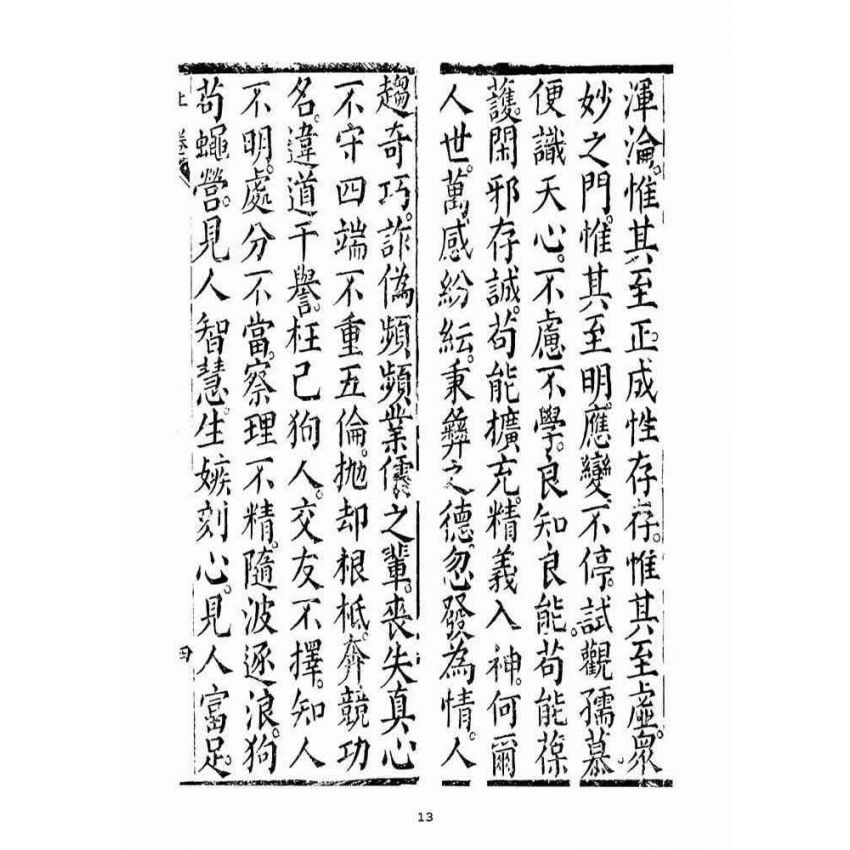 渾淪。惟其至正。成性存存。惟其至虛。眾
妙之門。惟其至明。應變不停。試觀孺慕。
便識天心。不慮不學。良知良能。苟能葆
護。閑邪存誠。苟能擴充。精義入神。何爾
人世。萬感紛紜。秉彝之德。忽發為情。人
趨奇巧。詐偽頻頻。業儒之輩。喪失真心
不守四端不重五倫。拋却根柢。奔競功
名。違道干譽。枉己狥人。交友不擇。知人
不明。處分不當。察理不精。隨波逐浪。狗
苟蠅營。見人智慧。生嫉刻心。見人富足。
上 卷首
四
13